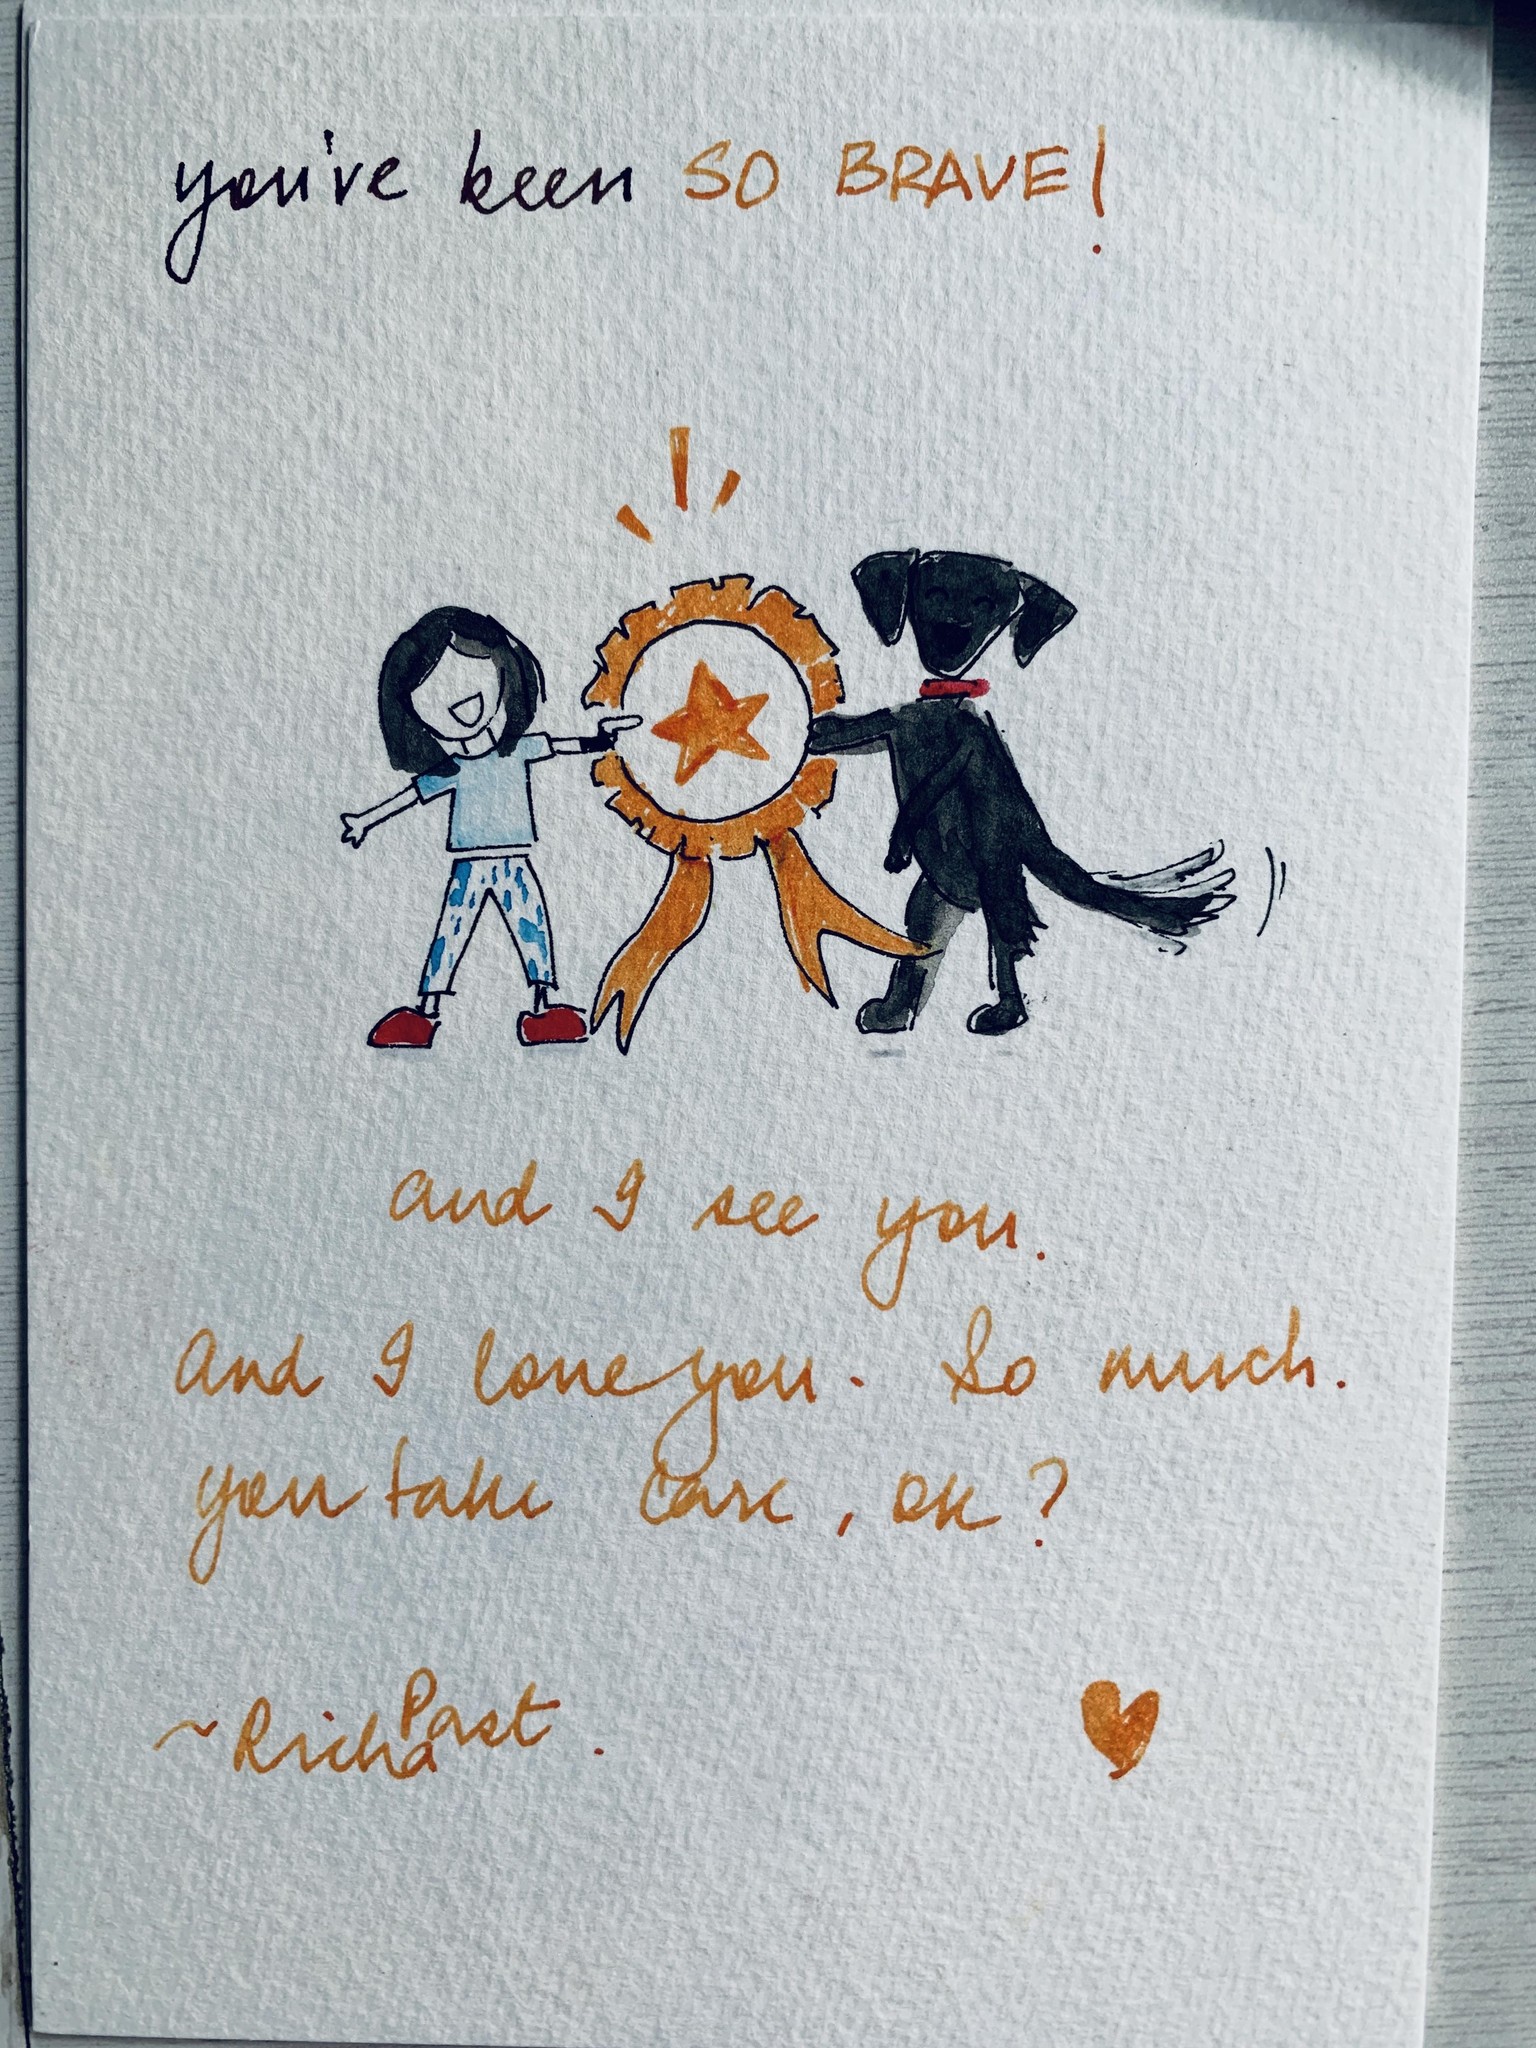 you've been SO BRAVE!
and I see you.
And I love you. So much.
you take care, ok?
~Richa Past.